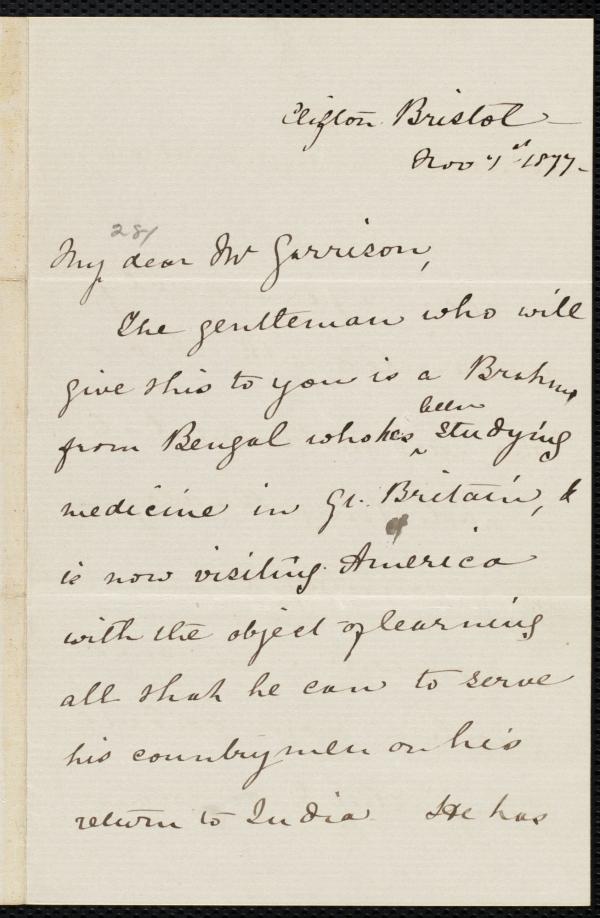 Clifton Bristol
Nov 1st 1877.
281
My dear Mr Garrison,
The gentleman who will
give this to you is a Brahmo
from Bengal who has been studying
medicine in Gt. Britain, &
is now visiting America
with the object of learning
all that he can to serve
his countrymen on his
return to India He has